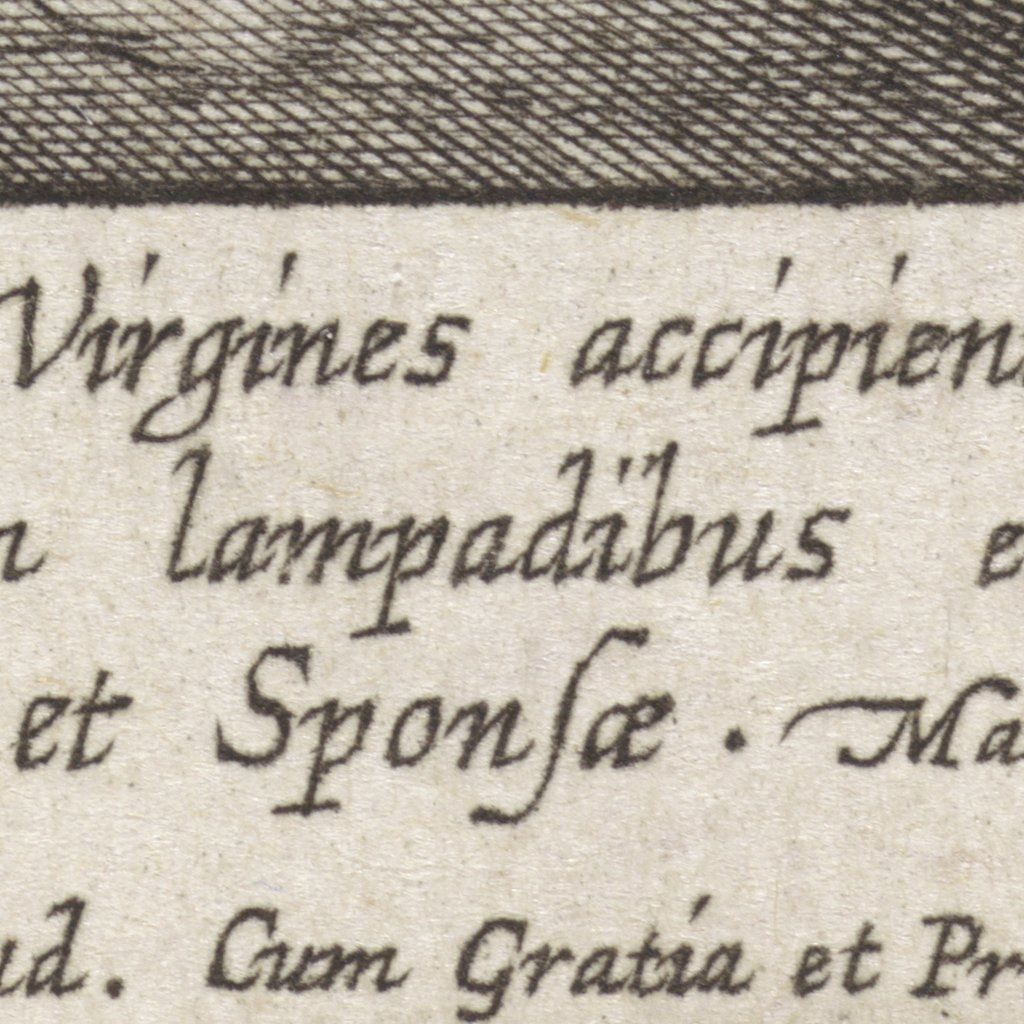 Virgines accipien
n lampadibus e
et Sponſæ . Ma
ud. Cum Gratia et Pr